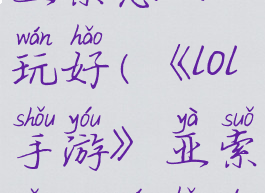 wán hǎo
玩好(《lol
shǒu yóu yà suǒ
手游》亚索